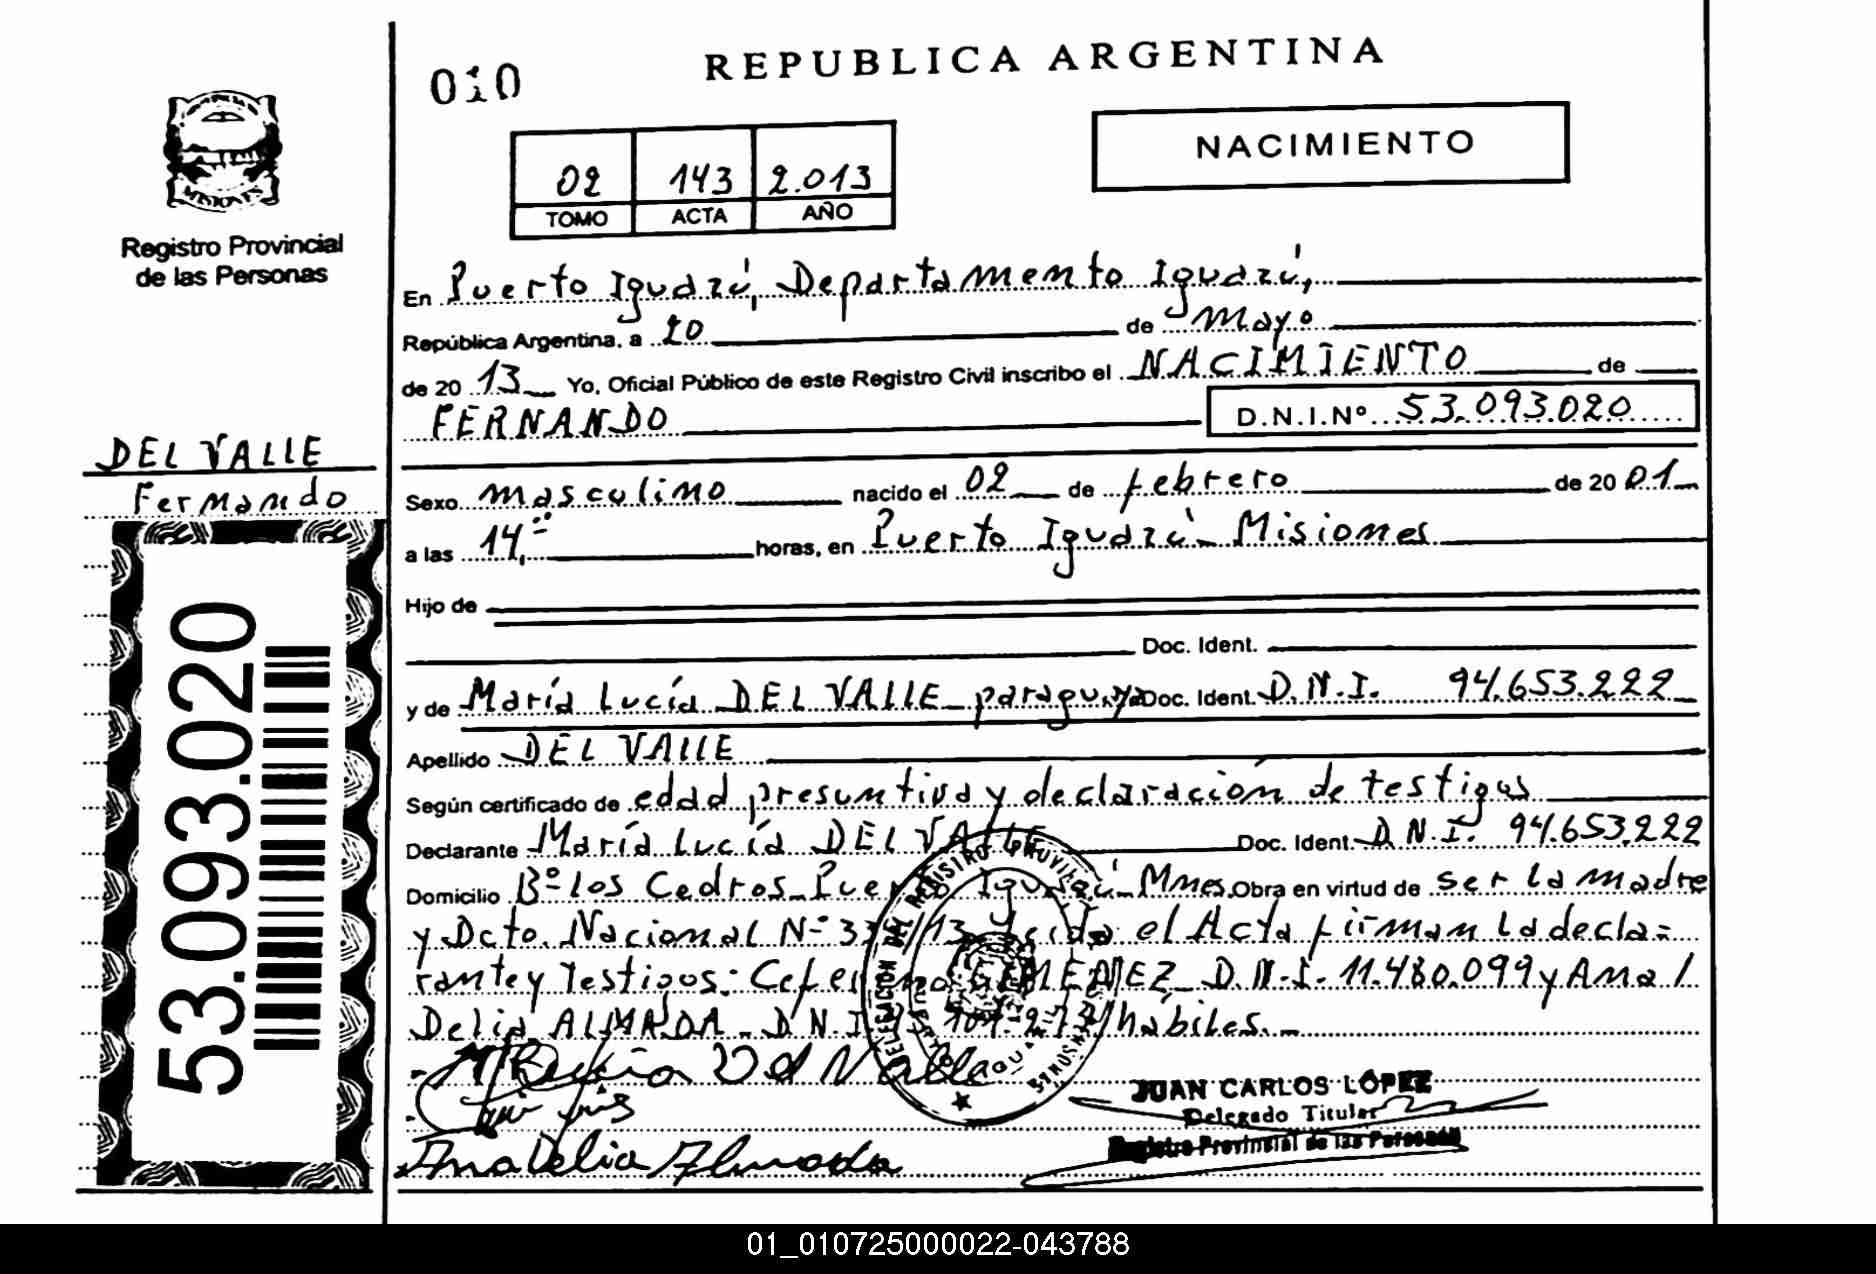 010
REPUBLICA ARGENTINA
NACIMIENTO
02 143 2.013
TOMO ACTA AÑO
MISIONES
Registro Provincial
de las Personas
En Puerto Iguazú, Departamento Iguazú,
República Argentina, a 20 de Mayo
de 20 13 Yo, Oficial Público de este Registro Civil inscribo el NACIMIENTO de
FERNANDO D.N.I.Nº 53.093.020
DEL VALLE
Fernando
53.093.020
Sexo masculino nacido el 02 de febrero de 20 01
a las 14,00 horas, en Puerto Iguazú - Misiones
Hijo de
Doc. Ident.
y de María Lucía DEL VALLE paraguaya Doc. Ident. D.N.I. 94.653.222
Apellido DEL VALLE
Según certificado de edad presuntiva y declaración de testigos
Declarante María Lucía DEL VALLE Doc. Ident. D.N.I. 94.653.222
Domicilio Bº Los Cedros - Puerto Iguazú - Mnes. Obra en virtud de ser la madre
y Dcto. Nacional Nº 13 leída el Acta firman la decla=
rante y Testigos: GIMENEZ D.N.I. 11.480.099 y Ana /
Delia ALMADA - D.N.I. /hábiles. -
DELEGACION DEL REGISTRO PROVINCIAL PERSONAS
Del Valle
Ana Delia Almada
JUAN CARLOS LÓPEZ
Delegado Titular
Registro Provincial de las Personas
01_010725000022-043788